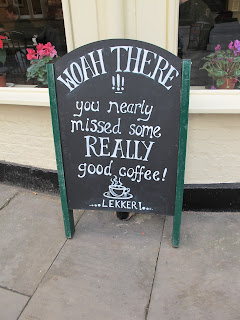 WOAH THERE
!!!
you nearly
missed some
REALLY
good coffee!
....LEKKER!....